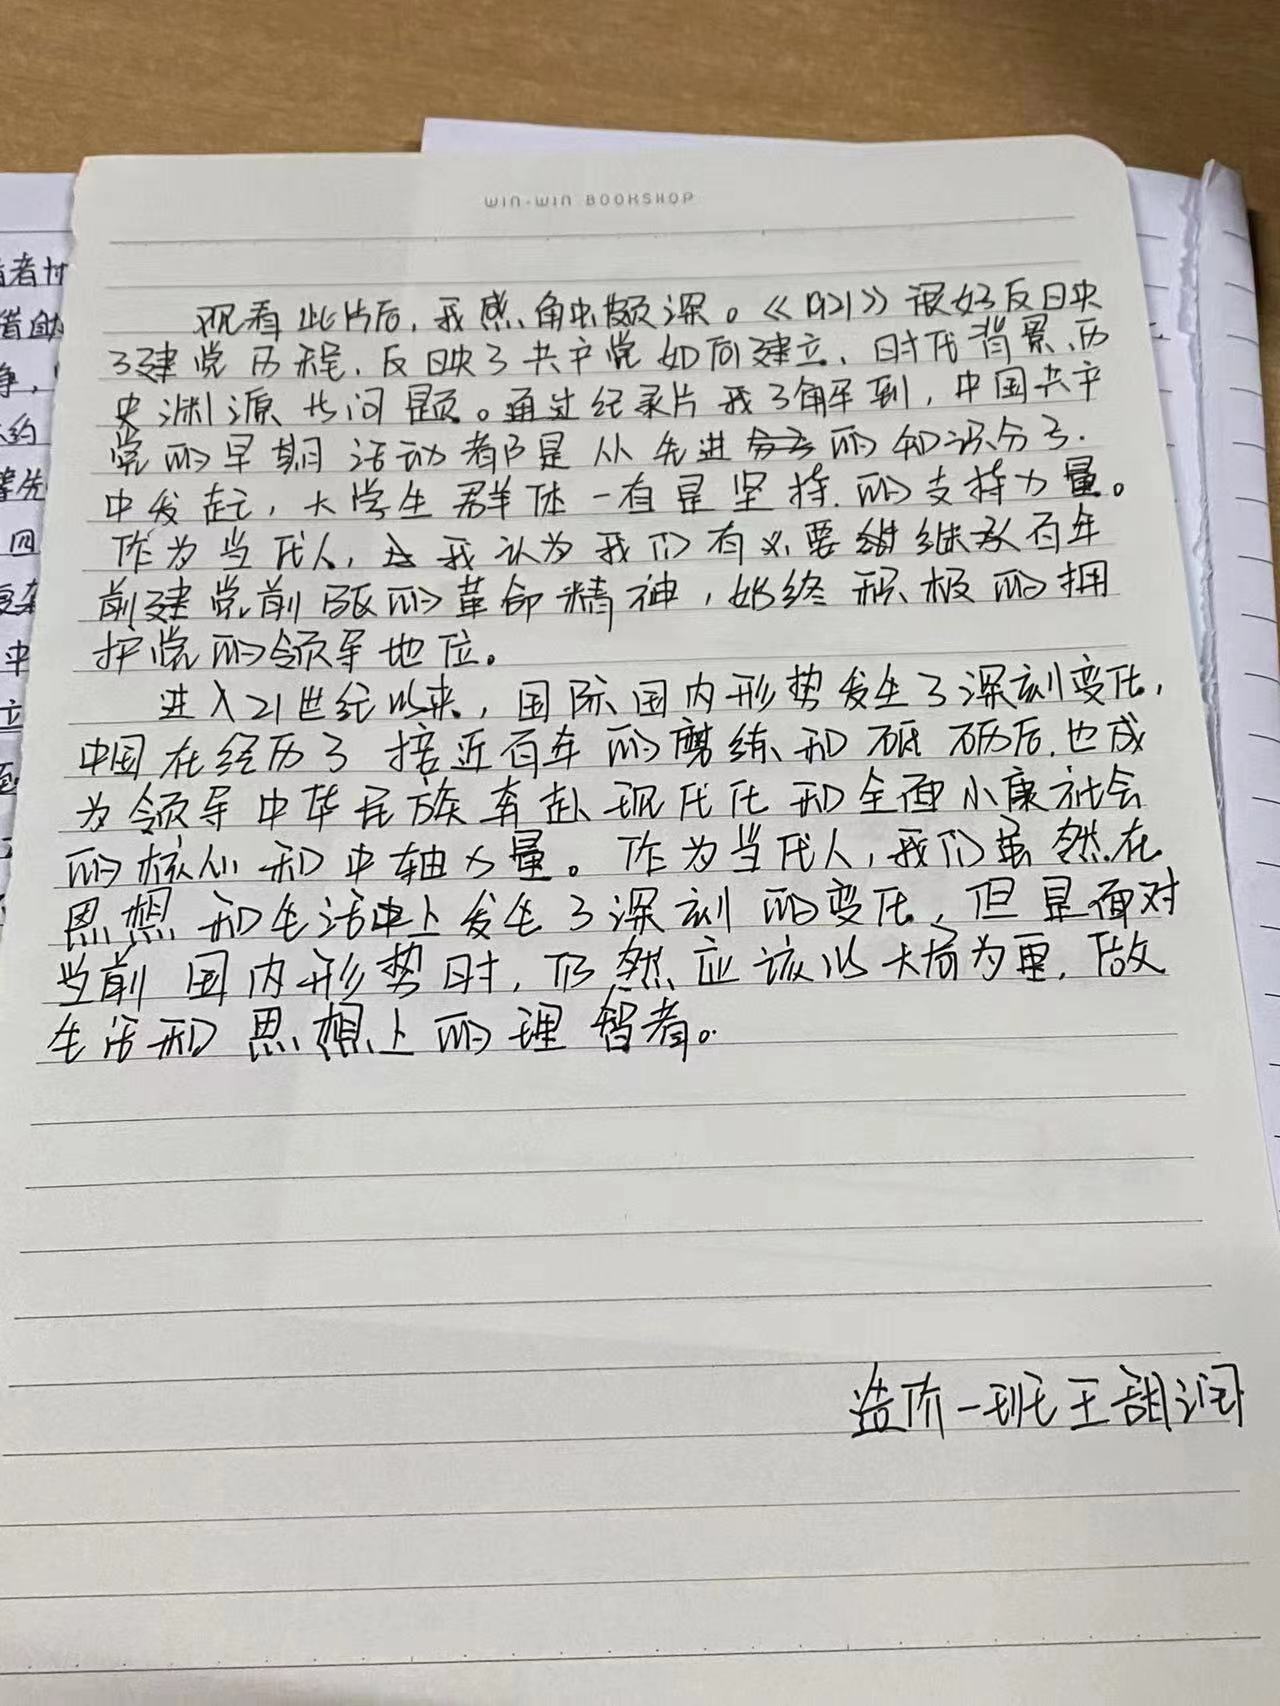 WIN-WIN BOOKSHOP
观看此片后，我感触颇深。《1921》很好反映
了建党历程，反映了共产党如何建立，时代背景，历
史渊源些问题。通过纪录片我了解到，中国共产
党的早期活动者都是从先进的知识分子
中发起，大学生群体一直是坚持的支持力量。
作为当代人，我认为我们有必要继承百年
前建党前驱的革命精神，始终积极的拥
护党的领导地位。
进入21世纪以来，国际国内形势发生了深刻变化，
中国在经历了接近百年的磨练和砥砺后，也成
为领导中华民族奔赴现代化和全面小康社会
的核心和中轴力量。作为当代人，我们虽然在
思想和生活上发生了深刻的变化，但是面对
当前国内形势时，仍然应该以大局为重，做
生活和思想上的理智者。
造价一班王甜润